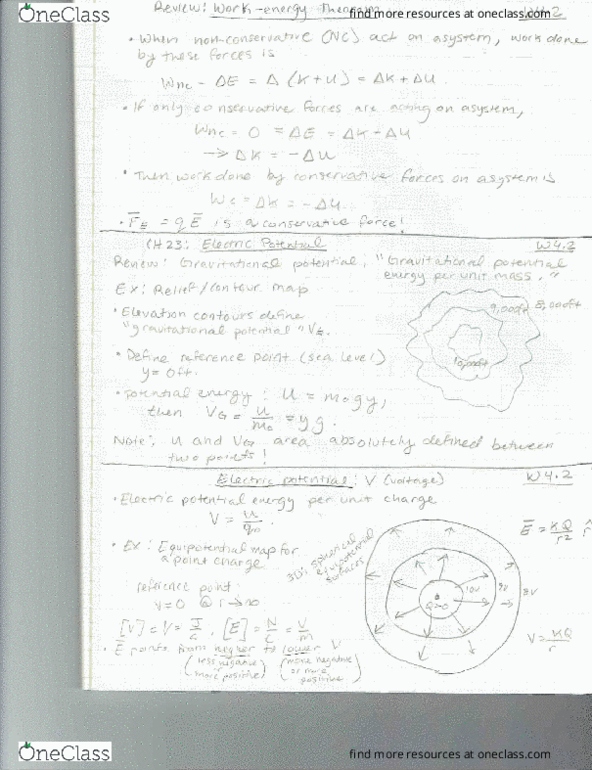 OneClass
find more resources at oneclass.com
Review: Work-energy Theorem W4.2
• When non-conservative (NC) act on a system, work done
by these forces is
Wnc - ΔE = Δ (K+U) = ΔK + ΔU.
• If only conservative forces are acting on a system,
Wnc = 0 = ΔE = ΔK - ΔU
→ ΔK = -ΔU
• Then work done by conservative forces on a system is
Wc = ΔK = -ΔU.
• F̄E = qĒ is a conservative force!
CH 23: Electric Potential W4.2
Review: Gravitational potential, "Gravitational potential
energy per unit mass."
Ex: Relief/contour map
9,000ft 8,000ft
• Elevation contours define
"gravitational potential" VG.
• Define reference point (sea level)
y = 0ft.
10,000ft
• potential energy: U = m₀gy,
then VG = U/m₀ = yg.
Note: U and VG area absolutely defined between
two points!
Electric potential: V (voltage) W4.2
• Electric potential energy per unit charge
V = U/q₀.
Ē = KQ/r² r̂
• Ex: Equipotential map for
a point charge
3D: spherical
equipotential
surfaces
reference point
V=0 @ r→∞
10V 9V 8V
Q>0
[V] = V = J/C, [E] = N/C = V/m
V = KQ/r
• E points from higher to lower V
(less negative more positive) (more negative or more positive)
OneClass
find more resources at oneclass.com